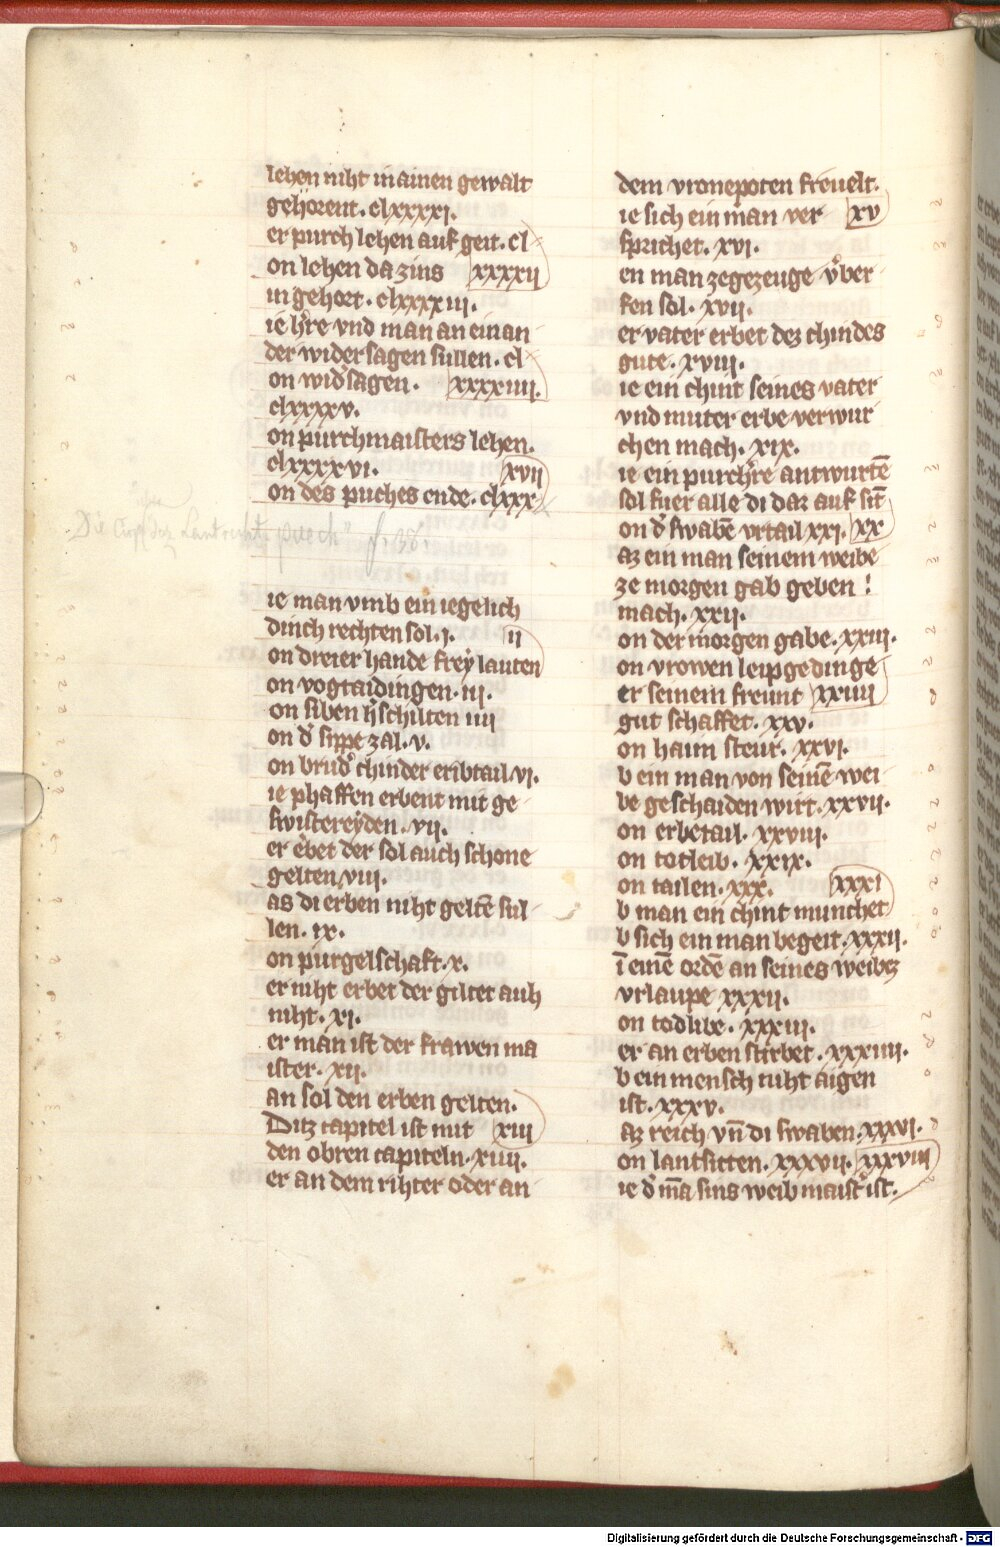 lehen niht in ainen gewalt
gehorent. clxxxxi.
er purch lehen auf geit. cl
on lehen da zins xxxxii
in gehort. clxxxxiii.
ie h're vnd man an ein an
der wider sagen sullen. cl
on wid' sagen. xxxxiiii.
clxxxxv.
on purchmaisters lehen.
clxxxxvi. xvii
on des puches ende. clxxx
puech
ie man vmb ein iegelich
dinch rechten sol. i. ii
on dreier hande frey lauten
on vogtaidingen. iii.
on siben h'schilten iiii
on d' sippe zal. v.
on brud' chinder eribtail vi.
ie phaffen erbent mit ge
swistereyden. vii.
er erbet der sol auch schone
gelten viii.
as di erben niht geltē sul
len. ix.
on purgelschaft. x.
er niht erbet der giltet auh
niht. xi.
er man ist der frawen ma
ister. xii.
an sol den erben gelten.
Ditz capitel ist mit xiii
den obren capiteln. xiiii.
er an dem rihter oder an
dem vronepoten freuelt.
ie sich ein man ver xv
sprichet. xvi.
en man ze gezeuge vͦber
fen sol. xvii.
er vater erbet dez chindes
gute. xviii.
ie ein chint seines vater
vnd muter erbe verwur
chen mach. xix.
ie ein purch're antwurtē
sol fuer alle di dar auf sīt
on d' swabē vrtail xxi. xx
az ein man seinem weibe
ze morgen gab geben !
mach. xxii.
on der morgen gabe. xxiii.
on vrowen leipgedinge
er seinem freunt xxiiii
gut schaffet. xxv.
on haim steur. xxvi.
b ein man von seinē wei
be geschaiden wirt. xxvii.
on erbetail. xxviii.
on totleib. xxix.
on tailen. xxx. xxxi
b man ein chint munchet
b sich ein man begeit. xxxii.
ī einē ordē an seines weibez
vrlaupe xxxii.
on todlibe. xxxiii.
er an erben stirbet. xxxiiii.
b ein mensch niht aigen
ist. xxxv.
az reich vn̄ di swaben. xxxvi.
on lantsitten. xxxvii. xxxviii
ie d' mā sins weib maist' ist.
Digitalisierung gefördert durch die Deutsche Forschungsgemeinschaft - DFG